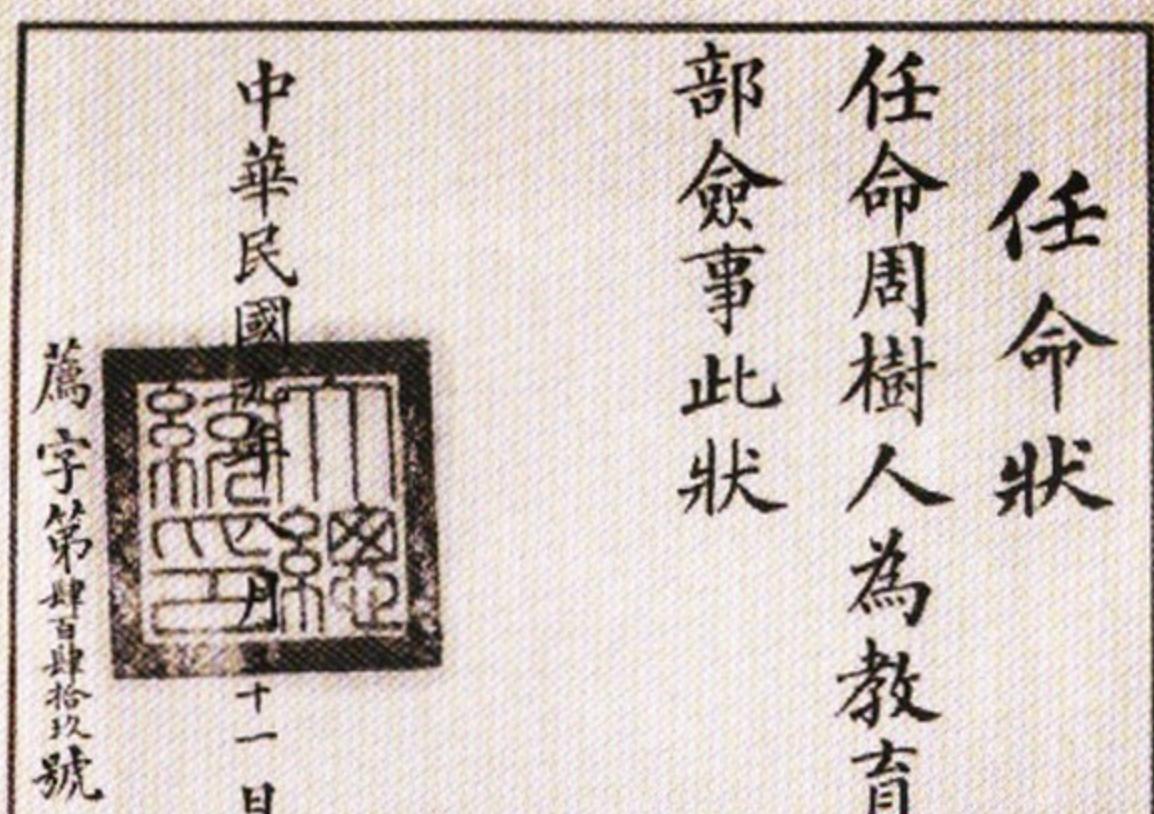 任命狀
任命周樹人為教育
部僉事此狀
中華民國元年八月二十一日
大總統印
薦字第肆百肆拾玖號